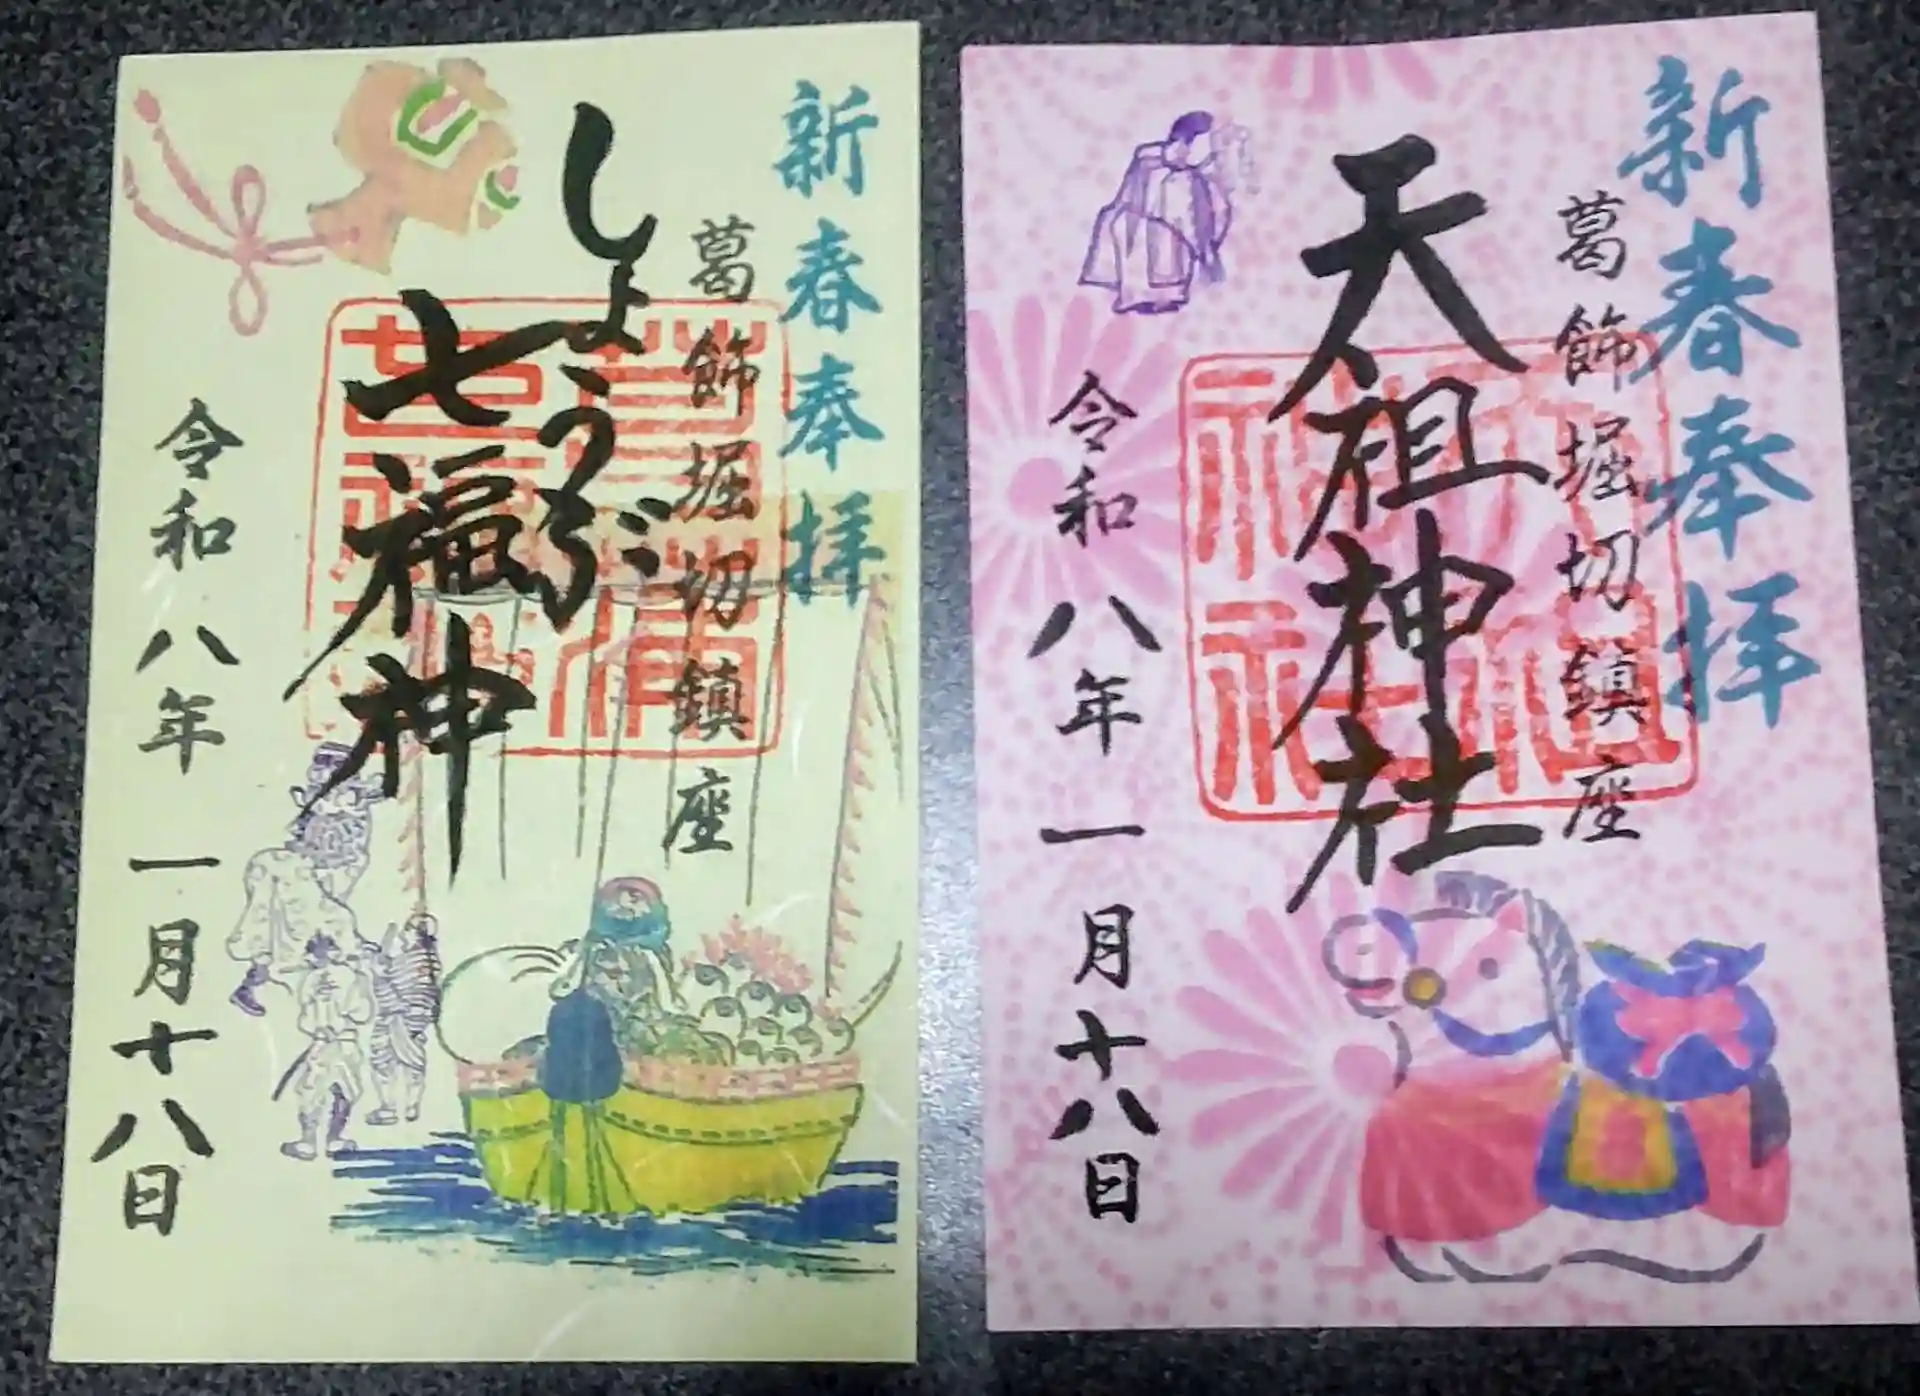 新春奉拝
葛飾堀切鎮座
しょうぶ
七福神
令和八年一月十八日
新春奉拝
葛飾堀切鎮座
天祖神社
令和八年一月十八日